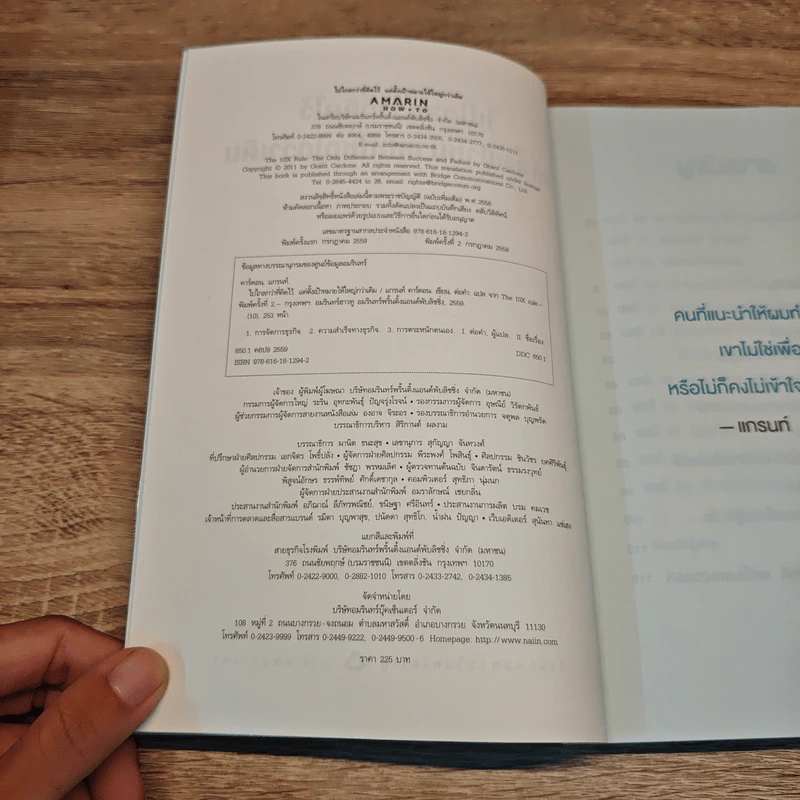 ไปไกลกว่าที่คิดไว้ แค่ตั้งเป้าหมายให้ใหญ่กว่าเดิม
AMARIN
HOW • TO
ในเครือบริษัทอมรินทร์พริ้นติ้งแอนด์พับลิชชิ่ง จำกัด (มหาชน)
378 ถนนชัยพฤกษ์ (บรมราชชนนี) เขตตลิ่งชัน กรุงเทพฯ 10170
โทรศัพท์ 0-2422-9999 ต่อ 4964, 4969 โทรสาร 0-2434-3555, 0-2434-3777, 0-2435-5111
E-mail: info@amarin.co.th
The 10X Rule: The Only Difference Between Success and Failure by Grant Cardone
Copyright © 2011 by Grant Cardone. All rights reserved. This translation published under license
This book is published through an arrangement with Bridge Communications Co., Ltd.
Tel. 0-2645-4424 to 26, email: rights@bridgecomm.org
สงวนลิขสิทธิ์หนังสือเล่มนี้ตามพระราชบัญญัติ (ฉบับเพิ่มเติม) พ.ศ. 2558
ห้ามคัดลอกเนื้อหา ภาพประกอบ รวมทั้งดัดแปลงเป็นแถบบันทึกเสียง ตลับวีดิทัศน์
หรือเผยแพร่ด้วยรูปแบบและวิธีการอื่นใดก่อนได้รับอนุญาต
เลขมาตรฐานสากลประจำหนังสือ 978-616-18-1294-2
พิมพ์ครั้งแรก กรกฎาคม 2559 พิมพ์ครั้งที่ 2 กรกฎาคม 2559
ข้อมูลทางบรรณานุกรมของศูนย์ข้อมูลอมรินทร์
คาร์ดอน, แกรนท์.
ไปไกลกว่าที่คิดไว้ แค่ตั้งเป้าหมายให้ใหญ่กว่าเดิม / แกรนท์ คาร์ดอน: เขียน; ต่อคำ: แปล จาก The 10X rule.–
พิมพ์ครั้งที่ 2.– กรุงเทพฯ: อมรินทร์ฮาวทู อมรินทร์พริ้นติ้งแอนด์พับลิชชิ่ง, 2559.
(10), 253 หน้า
1. การจัดการธุรกิจ. 2. ความสำเร็จทางธุรกิจ. 3. การตระหนักตนเอง. I. ต่อคำ, ผู้แปล. II. ชื่อเรื่อง.
650.1 ค6ป9 2559 DDC 650.1
ISBN 978-616-18-1294-2
เจ้าของ ผู้พิมพ์ผู้โฆษณา บริษัทอมรินทร์พริ้นติ้งแอนด์พับลิชชิ่ง จำกัด (มหาชน)
กรรมการผู้จัดการใหญ่ ระริน อุทกะพันธุ์ ปัญจรุ่งโรจน์ • รองกรรมการผู้จัดการ อุษณีย์ วิรัตกพันธ์
ผู้ช่วยกรรมการผู้จัดการสายงานหนังสือเล่ม องอาจ จิระอร • รองบรรณาธิการอำนวยการ จตุพล บุญพรัด
บรรณาธิการบริหาร สิริกานต์ ผลงาม
บรรณาธิการ ผานิต ธนะสุข • เลขานุการ สุกัญญา จันทวงศ์
ที่ปรึกษาฝ่ายศิลปกรรม เอกจิตร โพธิ์ปลั่ง • ผู้จัดการฝ่ายศิลปกรรม พีระพงศ์ โพสินธุ์ • ศิลปกรรม ชินวัชร ยศศิริพันธุ์
ผู้อำนวยการฝ่ายจัดการสำนักพิมพ์ ชัชฎา พรหมเลิศ • ผู้ตรวจทานต้นฉบับ จินดารัตน์ ธรรมรงวุทย์
พิสูจน์อักษร ธรรพ์ทิพย์ ศักดิ์เดชากุล • คอมพิวเตอร์ สุทธิภา นุ่มนก
ผู้จัดการฝ่ายประสานงานสำนักพิมพ์ อมราลักษณ์ เชยกลิ่น
ประสานงานสำนักพิมพ์ อภิฌาณ์ ลีภัทรพณิชย์, ชนิษฐา ศรีอินทร์ • ประสานงานการผลิต บรม คมเวช
เจ้าหน้าที่การตลาดและสื่อสารแบรนด์ รมิตา บุญพาสุข, ปนัดดา สุทธิโก, น้ำฝน ปัญญา • เว็บเอดิเตอร์ สุนันทา แซ่เฮง
แยกสีและพิมพ์ที่
สายธุรกิจโรงพิมพ์ บริษัทอมรินทร์พริ้นติ้งแอนด์พับลิชชิ่ง จำกัด (มหาชน)
376 ถนนชัยพฤกษ์ (บรมราชชนนี) เขตตลิ่งชัน กรุงเทพฯ 10170
โทรศัพท์ 0-2422-9000, 0-2882-1010 โทรสาร 0-2433-2742, 0-2434-1385
จัดจำหน่ายโดย
บริษัทอมรินทร์บุ๊คเซ็นเตอร์ จำกัด
108 หมู่ที่ 2 ถนนบางกรวย-จงถนอม ตำบลมหาสวัสดิ์ อำเภอบางกรวย จังหวัดนนทบุรี 11130
โทรศัพท์ 0-2423-9999 โทรสาร 0-2449-9222, 0-2449-9500-6 Homepage: http://www.naiin.com
ราคา 225 บาท
คนที่แนะนำให้ผมทำ
เขาไม่ใช่เพื่อ
หรือไม่ก็คงไม่เข้าใจ
— แกรนท์